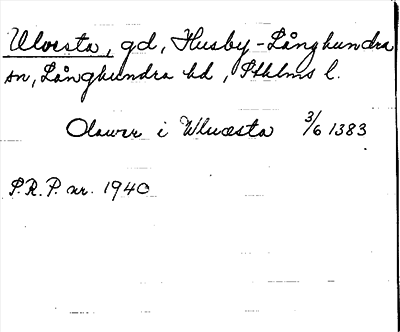 Ulvesta, gd, Husby-Långhundra
sn, Långhundra hd, Sthlms l.
Olawer i Wluæsta 3/6 1383
S.R.P. nr. 1940